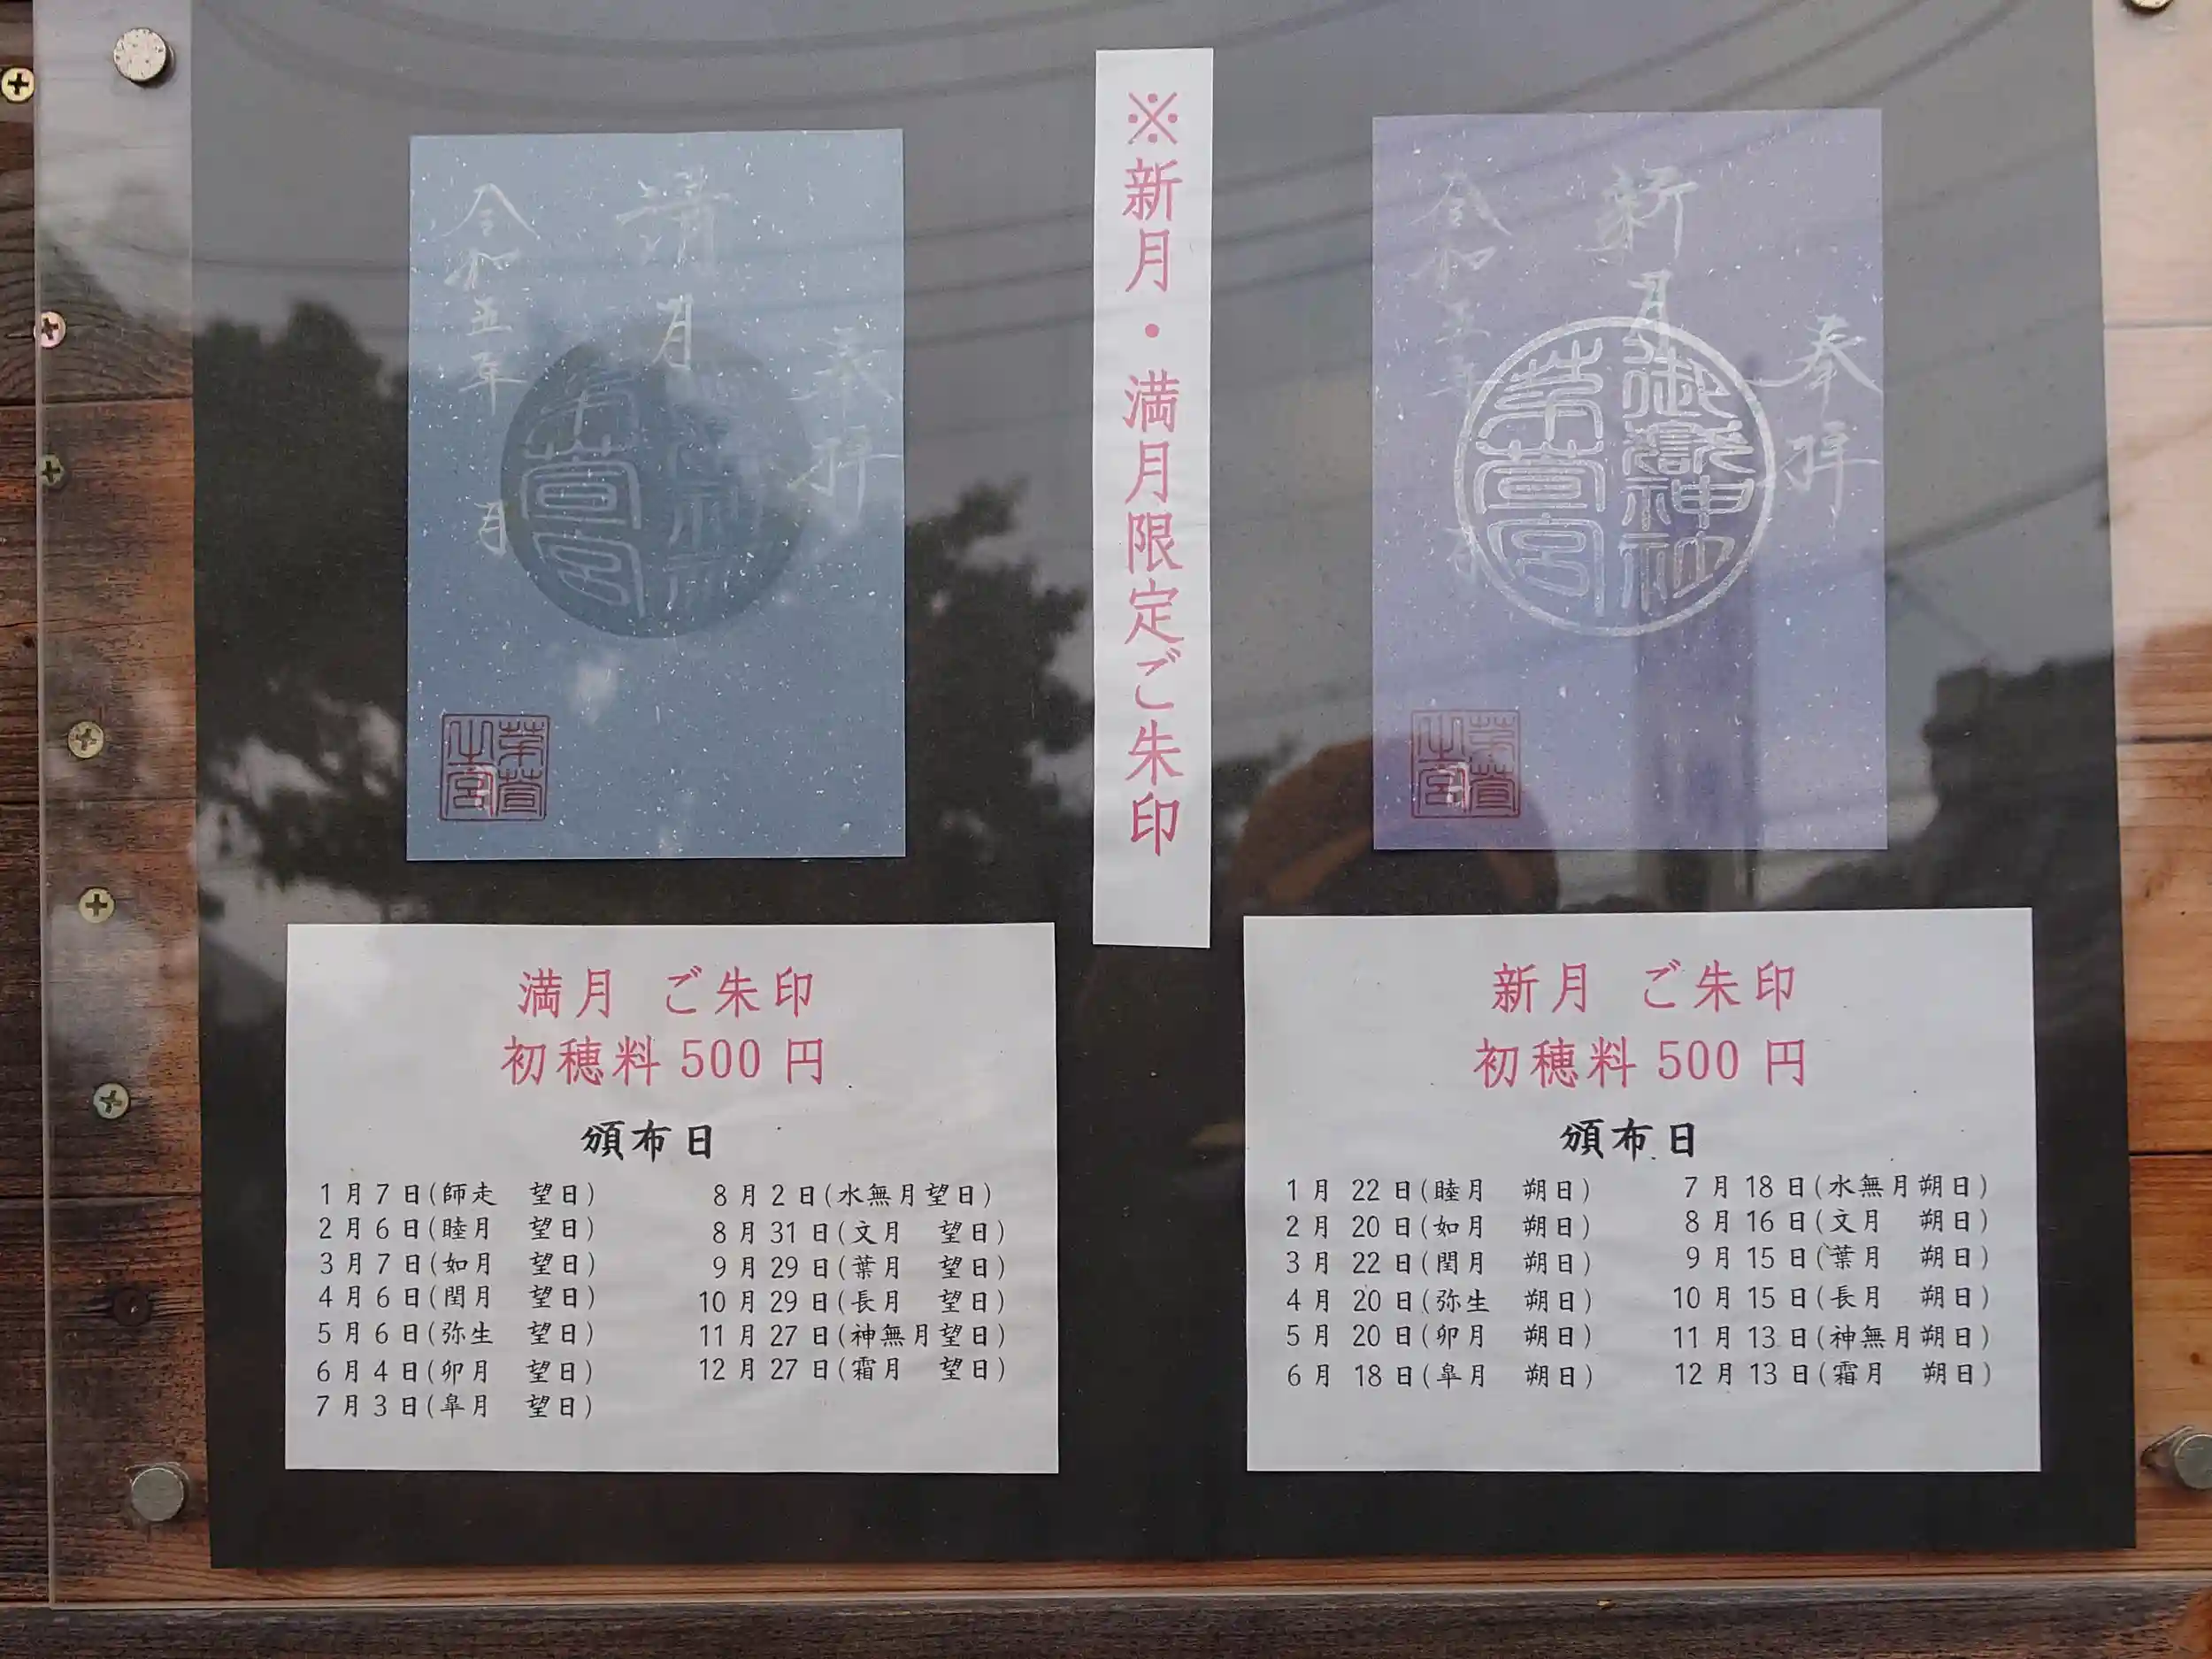 ※新月・満月限定ご朱印
奉拝
新月
令和五年 月
御嶽神社
茅萱宮
奉拝
満月
令和五年 月
茅萱宮
満月 ご朱印
初穂料500円
頒布日
1月7日(師走 望日)
2月6日(睦月 望日)
3月7日(如月 望日)
4月6日(閏月 望日)
5月6日(弥生 望日)
6月4日(卯月 望日)
7月3日(皐月 望日)
8月2日(水無月望日)
8月31日(文月 望日)
9月29日(葉月 望日)
10月29日(長月 望日)
11月27日(神無月望日)
12月27日(霜月 望日)
新月 ご朱印
初穂料500円
頒布日
1月22日(睦月 朔日)
2月20日(如月 朔日)
3月22日(閏月 朔日)
4月20日(弥生 朔日)
5月20日(卯月 朔日)
6月18日(皐月 朔日)
7月18日(水無月朔日)
8月16日(文月 朔日)
9月15日(葉月 朔日)
10月15日(長月 朔日)
11月13日(神無月朔日)
12月13日(霜月 朔日)